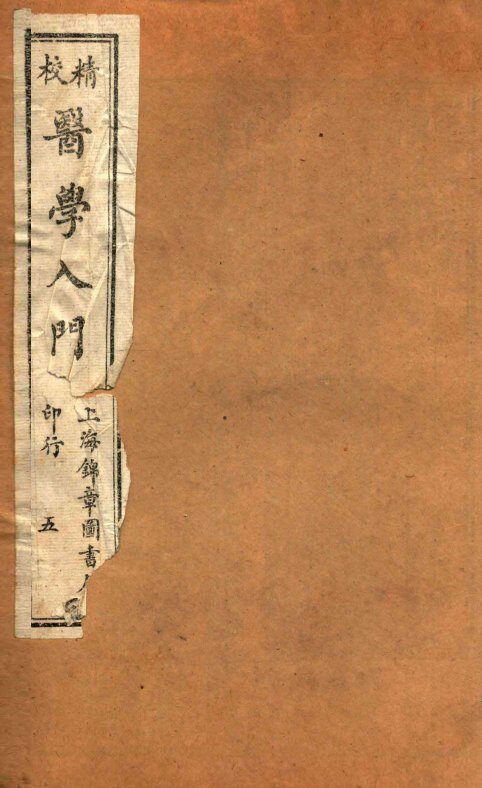 精校
醫學入門
上海錦章圖書
印行
五